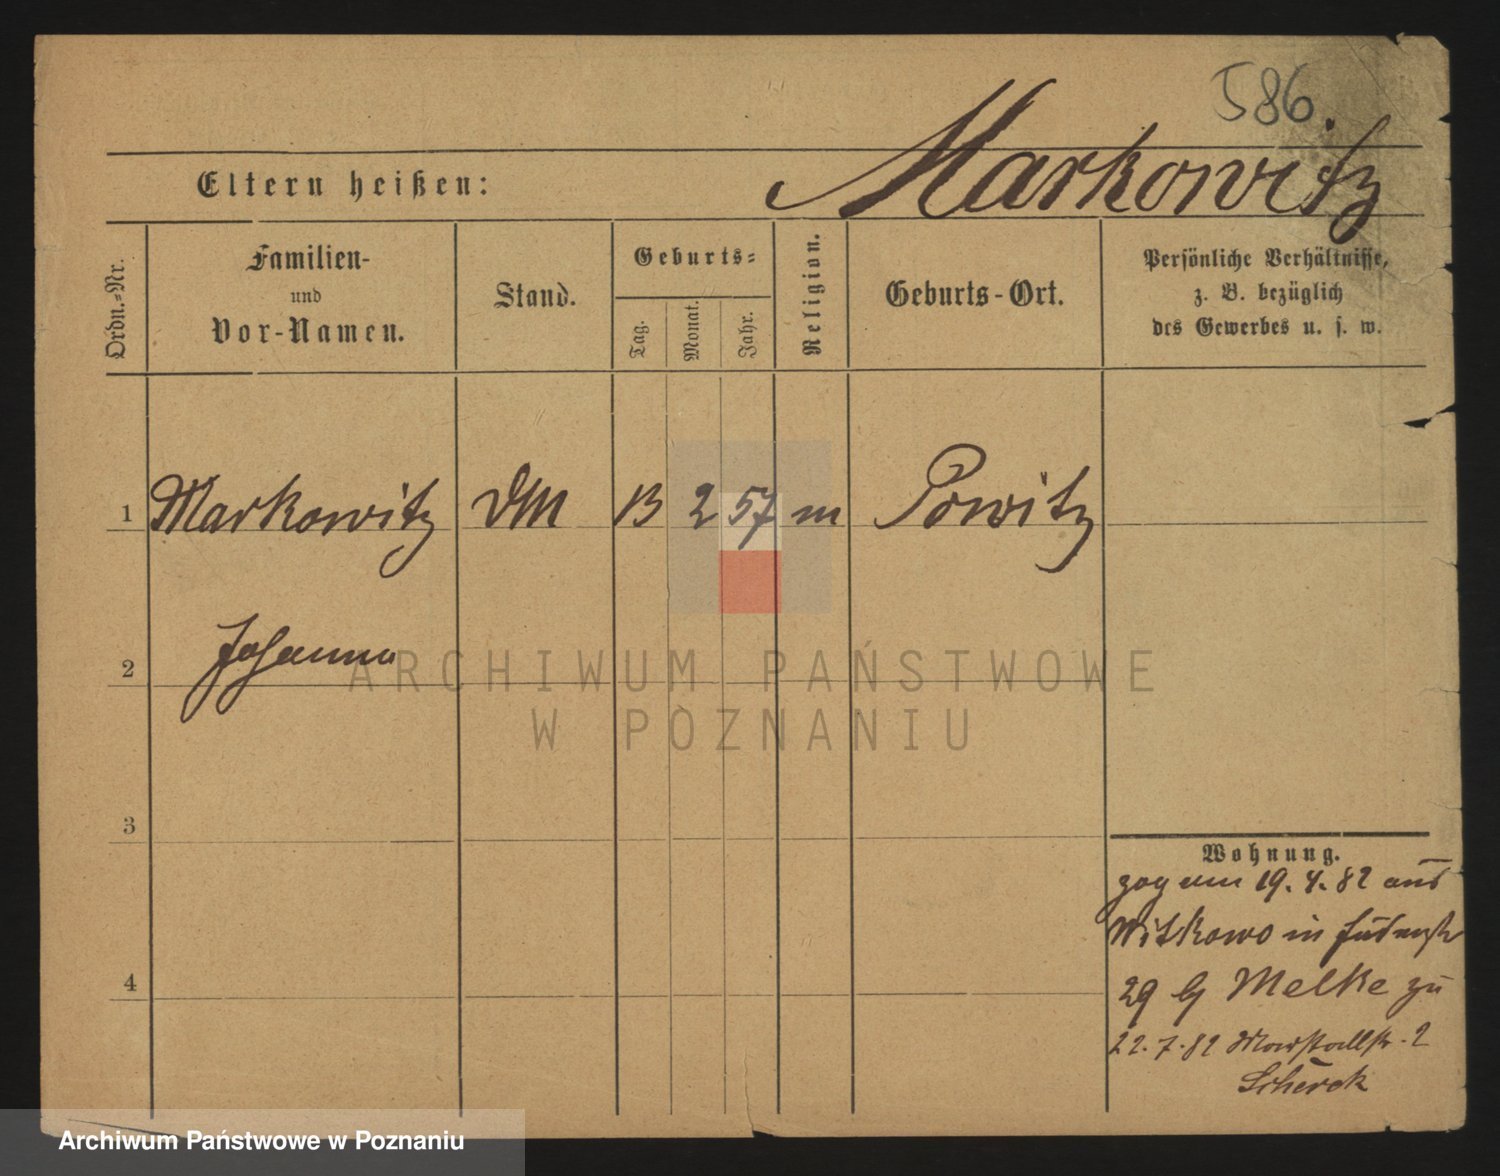 586.
Markowitz
Eltern heißen:
Ordn.=Nr.
Familien-
und
Vor-Namen.
Stand.
Geburts=
Tag.
Monat.
Jahr.
Religion.
Geburts-Ort.
Persönliche Verhältnisse,
z. B. bezüglich
des Gewerbes u. s. w.
1 Markowitz DM 13 2 57 m Powitz
2 Johanna
3
4
Wohnung.
zog am 19. 4. 82 aus
Witkowo in Judenstr
29 bj Melke zu
22. 7. 82 Marstallstr. 2
Scherek
ARCHIWUM PAŃSTWOWE
W POZNANIU
Archiwum Państwowe w Poznaniu